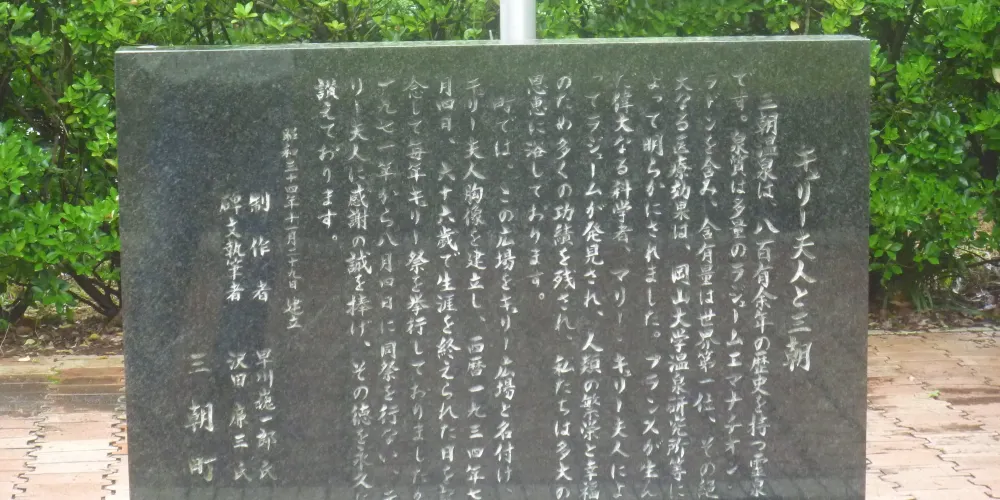 キュリー夫人と三朝
三朝温泉は、八百有余年の歴史を持つ霊泉
です。泉質は多量のラジュームエマナチオン・
ラドンを含み、含有量は世界第一位、その絶
大なる医療効果は、岡山大学温泉研究所等に
よって明らかにされました。フランスが生ん
偉大なる科学者、マリー・キュリー夫人によ
ってラジュームが発見され、人類の繁栄と幸福
のため多くの功績を残され、私たちは多大の
恩恵に浴しております。
町では、この広場をキュリー広場と名付け、
キュリー夫人胸像を建立し、西暦一九三四年七
月四日、六十六歳で生涯を終えられた日を記
念して毎年キュリー祭を挙行しておりましたが
一九七一年から八月四日に同祭を行ない、キュ
リー夫人に感謝の誠を捧げ、その徳を永久に
讃えております。
昭和五十四年十一月二十九日 建立
制作者 早川 一郎氏
碑文執筆者 沢田廉三氏
三朝町